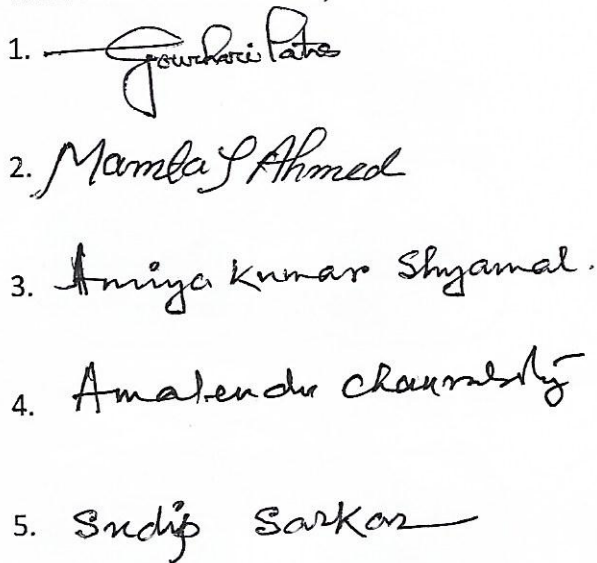 1. Gourhari Patra
2. Mamta S Ahmed
3. Amiya Kumar Shyamal.
4. Amalendu
5. Sudip Sarkar